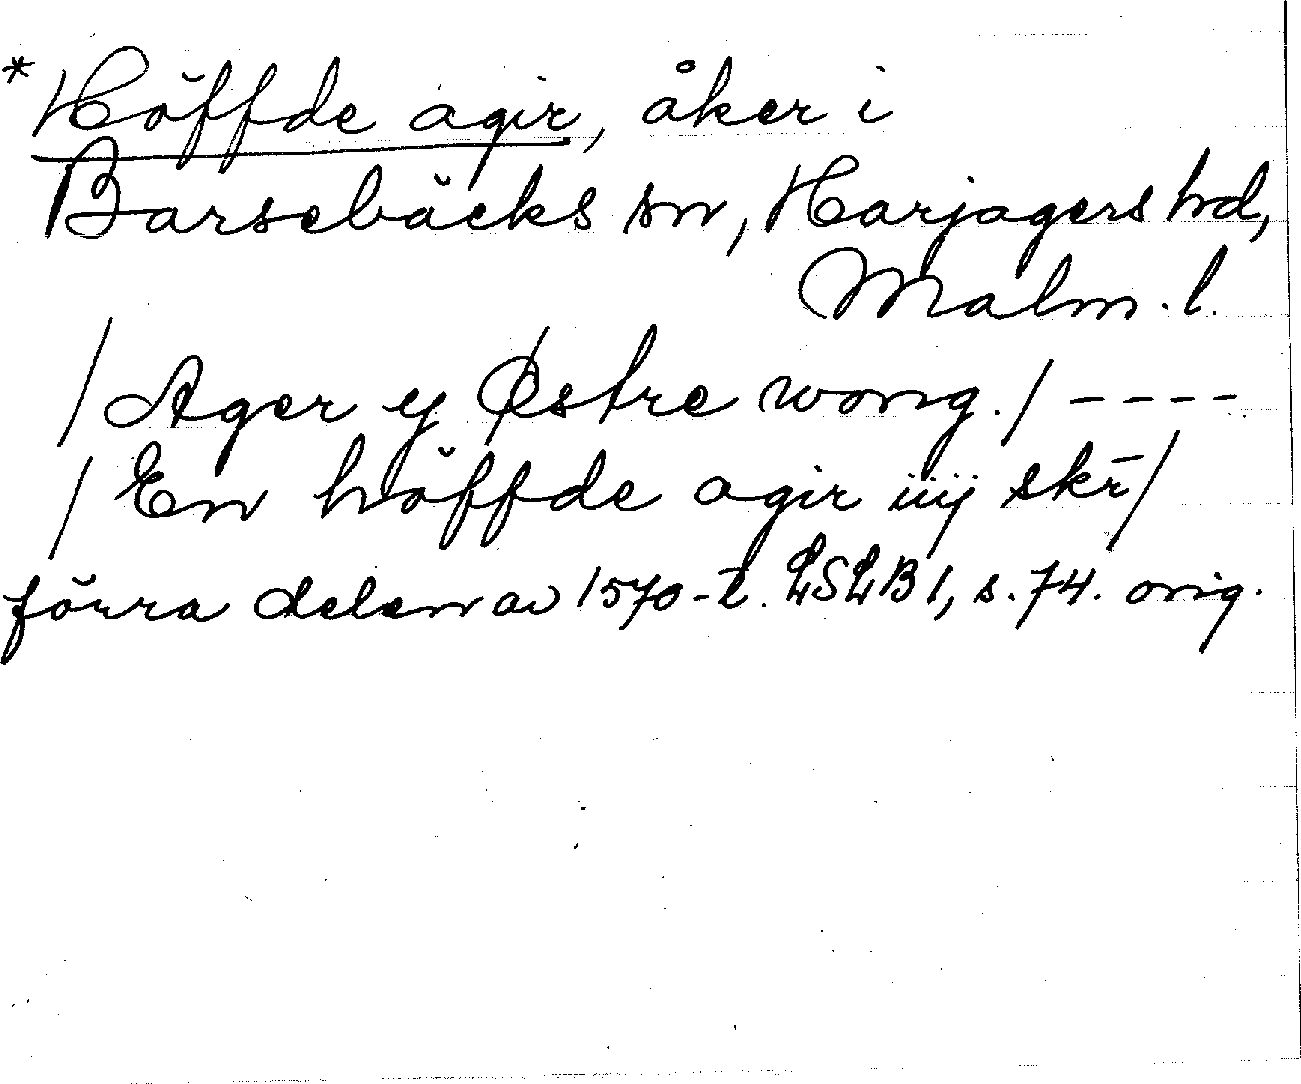 *Höffde agir, åker i
Barsebäcks sn, Harjagers hd,
Malm. l.
/Ager y Østre wong./ ----
/En höffde agir iiij skr̄/
förra delen av 1570-t. LSLB 1, s. 74. orig.